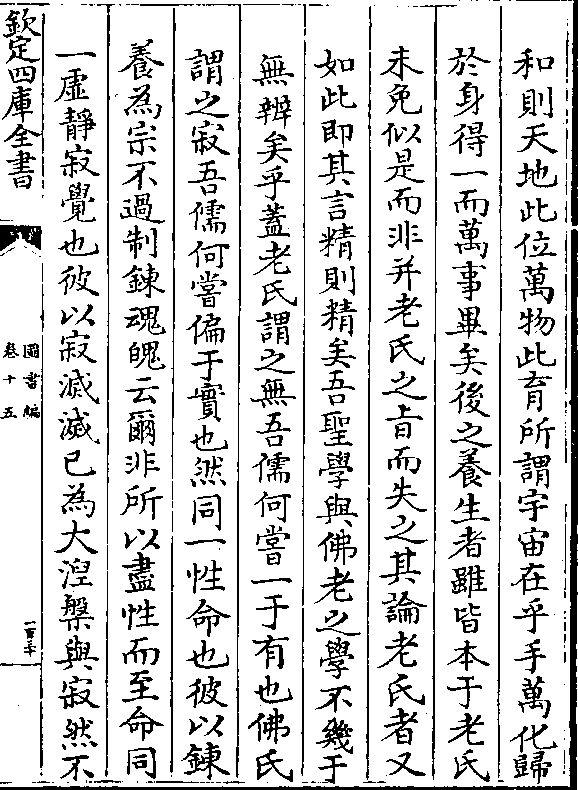 和則天地此位萬物此育所謂宇宙在乎手萬化歸
於身得一而萬事畢矣後之養生者雖皆本于老氏
未免似是而非并老氏之㫖而失之其論老氏者又
如此即其言精則精矣吾聖學與佛老之學不幾于
無辨矣乎蓋老氏謂之無吾儒何嘗一于有也佛氏
謂之寂吾儒何嘗偏于實也然同一性命也彼以鍊
養為宗不過制鍊魂魄云爾非所以盡性而至命同
一虛靜寂覺也彼以寂滅滅已為大涅槃與寂然不
欽定四庫全書
圖書編
卷十五